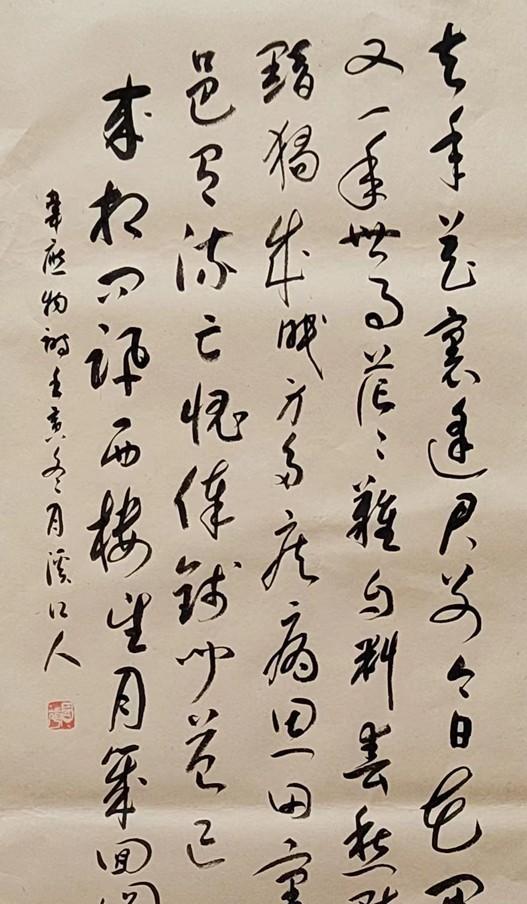 去年花裏逢君别今日花開
又一年世事茫茫難自料春愁黯
黯獨成眠身多疾病思田裏
邑有流亡愧俸錢聞道
来相問訊西樓望月幾回圓
韋應物詩壬寅冬月溪口人